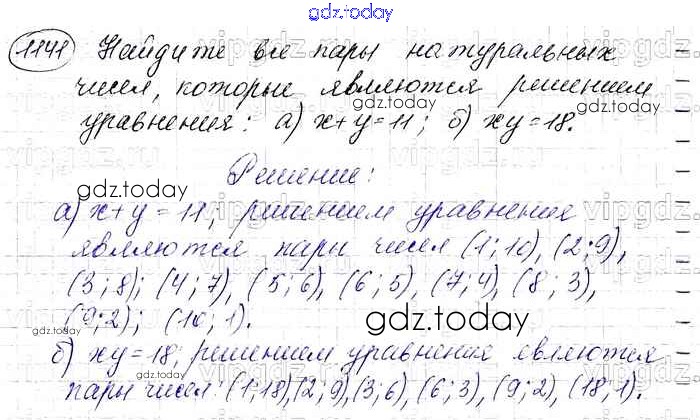 gdz.today
1141 Найдите все пары натуральных
чисел, которые являются решением
gdz.today
уравнения: а) x+y=11; б) xy=18.
Решение:
gdz.today
а) x+y=11, решением уравнения
являются пары чисел (1; 10), (2; 9),
(3; 8); (4; 7), (5; 6), (6; 5), (7; 4), (8; 3),
(9; 2); (10; 1).
gdz.today
gdz.today
б) xy=18, решением уравнения являются
пары чисел: (1; 18), (2; 9), (3; 6), (6; 3), (9; 2), (18; 1).
gdz.today